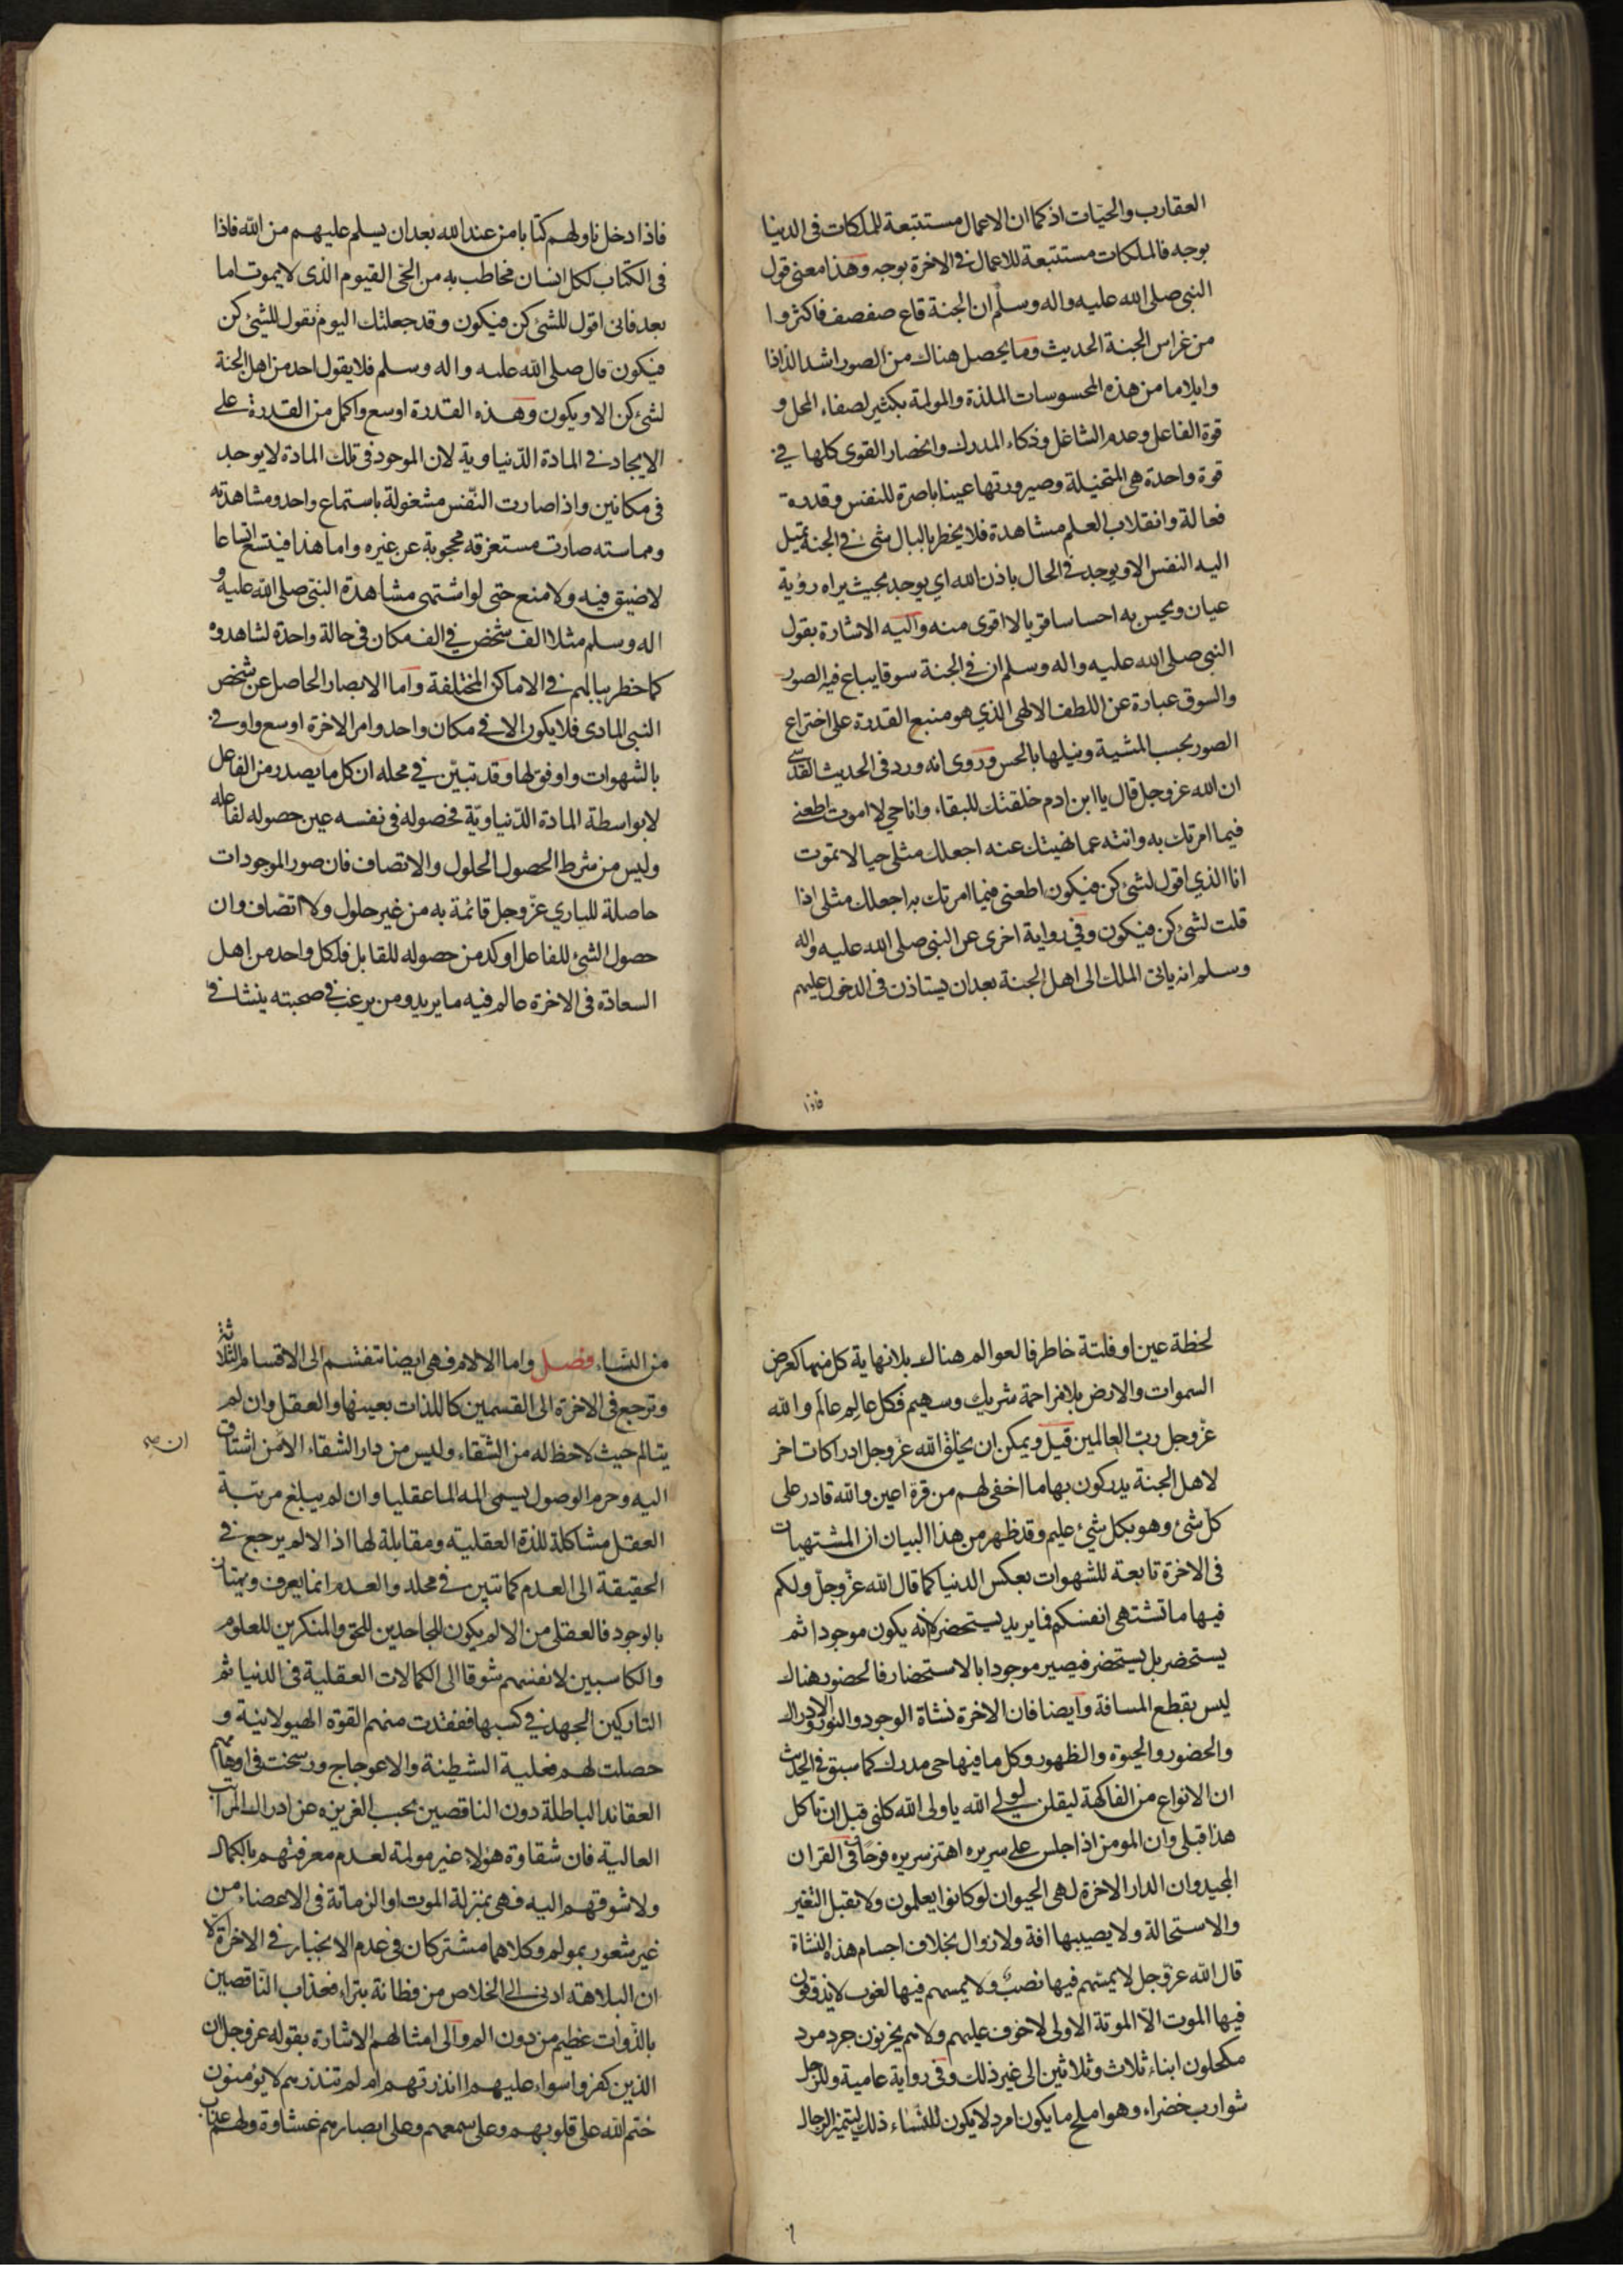 العقارب والحيّات اذ كما ان الاعمال مستتبعة للملكات فى الدنيا
بوجه فالملكات مستتبعة للاعمال فى الاخرة بوجه وهذا معنى قول
النبى صلى الله عليه واله وسلم ان الجنة قاع صفصف فاكثروا
من غراس الجنة الحديث وما يحصل هناك من الصور اشد الذاذا
وايلاما من هذه المحسوسات الملذة والمولمة بكثير لصفاء المحل و
قوة الفاعل وعدم الشاغل وذكاء المدرك وانحصار القوى كلها فى
قوة واحدة هى المتخيلة وصيرورتها عينا باصرة للنفس وقدرة
فعالة وانقلاب العلم مشاهدة فلا يخطر بالبال شئ فى الجنة تميل
اليه النفس الا ويوجد فى الحال باذن الله اي يوجد بحيث يراه رؤية
عيان ويحس به احساسا قويا لا اقوى منه واليه الاشارة بقول
النبى صلى الله عليه واله وسلم ان فى الجنة سوقا يباع فيه الصور
والسوق عبارة عن اللطف الالهى الذي هو منبع القدرة على اختراع
الصور بحسب المشية ونيلها بالحس وروى انه ورد فى الحديث القدسى
ان الله عز وجل قال يا ابن ادم خلقتك للبقاء وانا حي لا اموت اطعنى
فيما امرتك به وانته عما نهيتك عنه اجعلك مثلى حيا لا تموت
انا الذي اقول لشئ كن فيكون اطعنى فيما امرتك به اجعلك مثلى اذا
قلت لشئ كن فيكون وفى رواية اخرى عن النبى صلى الله عليه واله
وسلم انه ياتى الملك الى اهل الجنة بعد ان يستاذن فى الدخول عليهم
فاذا
فاذا دخل ناولهم كتابا من عند الله بعد ان يسلم عليهم من الله فاذا
فى الكتاب لكل انسان مخاطب به من الحى القيوم الذى لا يموت اما
بعد فانى اقول للشئ كن فيكون وقد جعلتك اليوم تقول للشئ كن
فيكون قال صلى الله عليه واله وسلم فلا يقول احد من اهل الجنة
لشئ كن الا ويكون وهذه القدرة اوسع واكمل من القدرة على
الايجاد فى المادة الدّنياوية لان الموجود فى تلك المادة لا يوجد
فى مكانين واذا صارت النّفس مشغولة باستماع واحد ومشاهدته
ومماسته صارت مستغرقة محجوبة عن غيره واما هذا فيتسع اتساعا
لا ضيق فيه ولا منع حتى لو اشتهى مشاهدة النبى صلى الله عليه و
اله وسلم مثلا الف شخص فى الف مكان فى حالة واحدة لشاهدوه
كما خطر ببالهم فى الاماكن المختلفة واما الابصار الحاصل عن شخص
النبى المادى فلا يكون الا فى مكان واحد وامر الاخرة اوسع واوفى
بالشهوات واوفق لها وقد تبيّن فى محله ان كل ما يصدر من الفاعل
لا بواسطة المادة الدّنياويّة فحصوله فى نفسه عين حصوله لفاعله
وليس من شرط الحصول الحلول والاتصاف فان صور الموجودات
حاصلة للباري عزّ وجل قائمة به من غير حلول ولا اتصاف وان
حصول الشئ للفاعل اوكد من حصوله للقابل فلكل واحد من اهل
السعادة فى الاخرة عالم فيه ما يريد ومن يرغب فى صحبته ينشا فى
لحظة عين او فلتة خاطر فالعوالم هناك بلا نهاية كل منها كعرض
السموات والارض بلا مزاحمة شريك وسهيم فكل عالم عالم والله
عزّ وجل رب العالمين قيل ويمكن ان يخلق الله عزّ وجل ادراكات اخر
لاهل الجنة يدركون بها ما اخفى لهم من قرة اعين والله قادر على
كل شئ وهو بكل شئ عليم وقد ظهر من هذا البيان ان المشتهيات
فى الاخرة تابعة للشهوات بعكس الدنيا كما قال الله عزّ وجلّ ولكم
فيها ما تشتهى انفسكم فما يريد يستحضر لا انه يكون موجودا ثم
يستحضر بل يستحضر فيصير موجودا بالاستحضار فالحضور هناك
ليس بقطع المسافة وايضا فان الاخرة نشاة الوجود والنور والادراك
والحضور والحيوة والظهور وكل ما فيها حى مدرك كما سبق فى الحديث
ان الانواع من الفاكهة ليقلن لولى الله يا ولى الله كلنى قبل ان تاكل
هذا قبلى وان المومن اذا جلس على سريره اهتز سريره فرحا وفى القران
المجيد وان الدار الاخرة لهى الحيوان لو كانوا يعلمون ولا يقبل التغير
والاستحالة ولا يصيبها افة ولا زوال بخلاف اجسام هذه النشاة
قال الله عزّ وجل لا يمسّهم فيها نصبٌ ولا يمسهم فيها لغوب لا يذوقون
فيها الموت الّا الموتة الاولى لا خوف عليهم ولا هم يحزنون جرد مرد
مكحلون ابناء ثلاث وثلاثين الى غير ذلك وفى رواية عامية وللرجل
شوارب خضراء وهو املح ما يكون امرد لا يكون للنّساء ذلك ليتميز الرجال
من النّساء فصل واما الالام فهى ايضا تنقسم الى الاقسام الثلاثة
وترجع فى الاخرة الى القسمين كاللذات بعينها والعقل وان لم
يتالم حيث لا حظ له من الشّقاء وليس من دار الشقاء الا من اشتاق
ان صح
اليه وحرم الوصول يسمى المه الما عقليا وان لم يبلغ مرتبة
العقل مشاكلة للذة العقلية ومقابلة لها اذ الالم يرجع فى
الحقيقة الى العدم كما تبين فى محله والعدم انما يعرف ويمتاز
بالوجود فالعقلى من الالم يكون للجاحدين للحق والمنكرين للعلوم
والكاسبين لانفسهم شوقا الى الكمالات العقلية فى الدنيا ثم
التاركين الجهد فى كسبها ففقدت منهم القوّة الهيولانية و
حصلت لهم فعلية الشيطنة والاعوجاج ورسخت فى اوهامهم
العقائد الباطلة دون الناقصين بحسب الغريزة عن ادراك المراتب
العالية فان شقاوة هؤلاء غير مولمة لعدم معرفتهم بالكمال
ولا شوقهم اليه فهى بمنزلة الموت او الزمانة فى الاعضاء من
غير شعور بمولم وكلاهما مشتركان فى عدم الانجبار فى الاخرة الّا
ان البلاهة ادنى الى الخلاص من فطانة بتراء فعذاب النّاقصين
بالذّوات عظيم من دون الم والى امثالهم الاشارة بقوله عز وجل ان
الذين كفروا سواء عليهم ءانذرتهم ام لم تنذرهم لا يؤمنون
ختم الله على قلوبهم وعلى سمعهم وعلى ابصارهم غشاوة ولهم عذاب